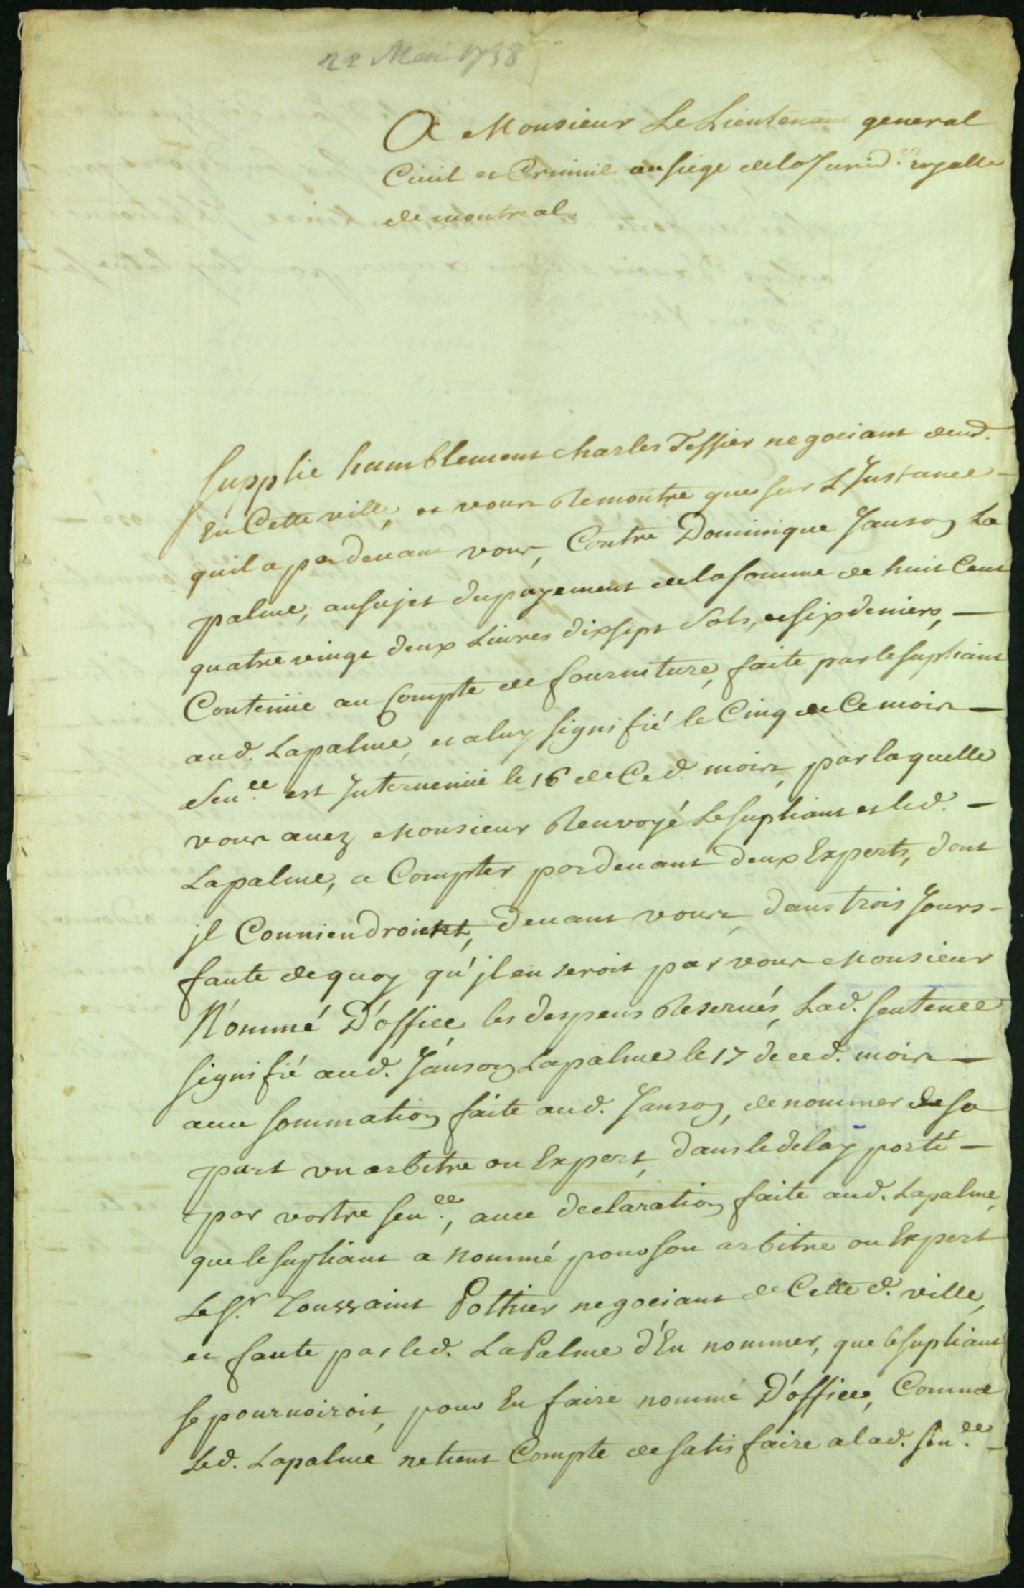 22 Mai 1758
A Monsieur Le Lieutenant general
Ciuil et Criminel au siege de la Jurid.on royalle
de montreal
Supplie humblement charles Tessier negociant dem.t
En Cette ville, et vous Remontre que sur L'Instance
quil a pardeuant vous, Contre Dominique Janson La
palme, au sujet du payement de la somme de huit Cent
quatre vingt deux Liures dix sept Sols, et six deniers,
Contenüe au Compte de fourniture, faite par le supliant
aud. Lapalme, et a luy signifié le Cinq de Ce mois
Sen.ce est Interuenüe le 16 de Ced. mois, par laquelle
vous auez Monsieur Renvoyé Le supliant et led.
Lapalme, a Compter pardeuant deux Experts, dont
jl Conuiendroient, deuant vous, dans trois Jours
faute de quoy qu'jl en seroit par vous Monsieur
Nommé D'office, les despens Reserués, Lad. Sentence
signifié aud. Janson Lapalme le 17 de ced. mois
auec sommation faite aud. Janson, de nommer de sa
part vn arbitre ou Expert, dans le delay porté
par vostre Sen.ce, auec declaration faite aud. Lapalme,
que le supliant a nommé pour son arbitre ou Expert
Le Sr. Toussaint Pothier negociant de Cetted. ville,
et faute par led. LaPalme d'En nommer, que le supliant
se pouruoiroit, pour En faire nommé D'office, Comme
Led. Lapalme ne tient Compte de satisfaire a lad. Sen.ce